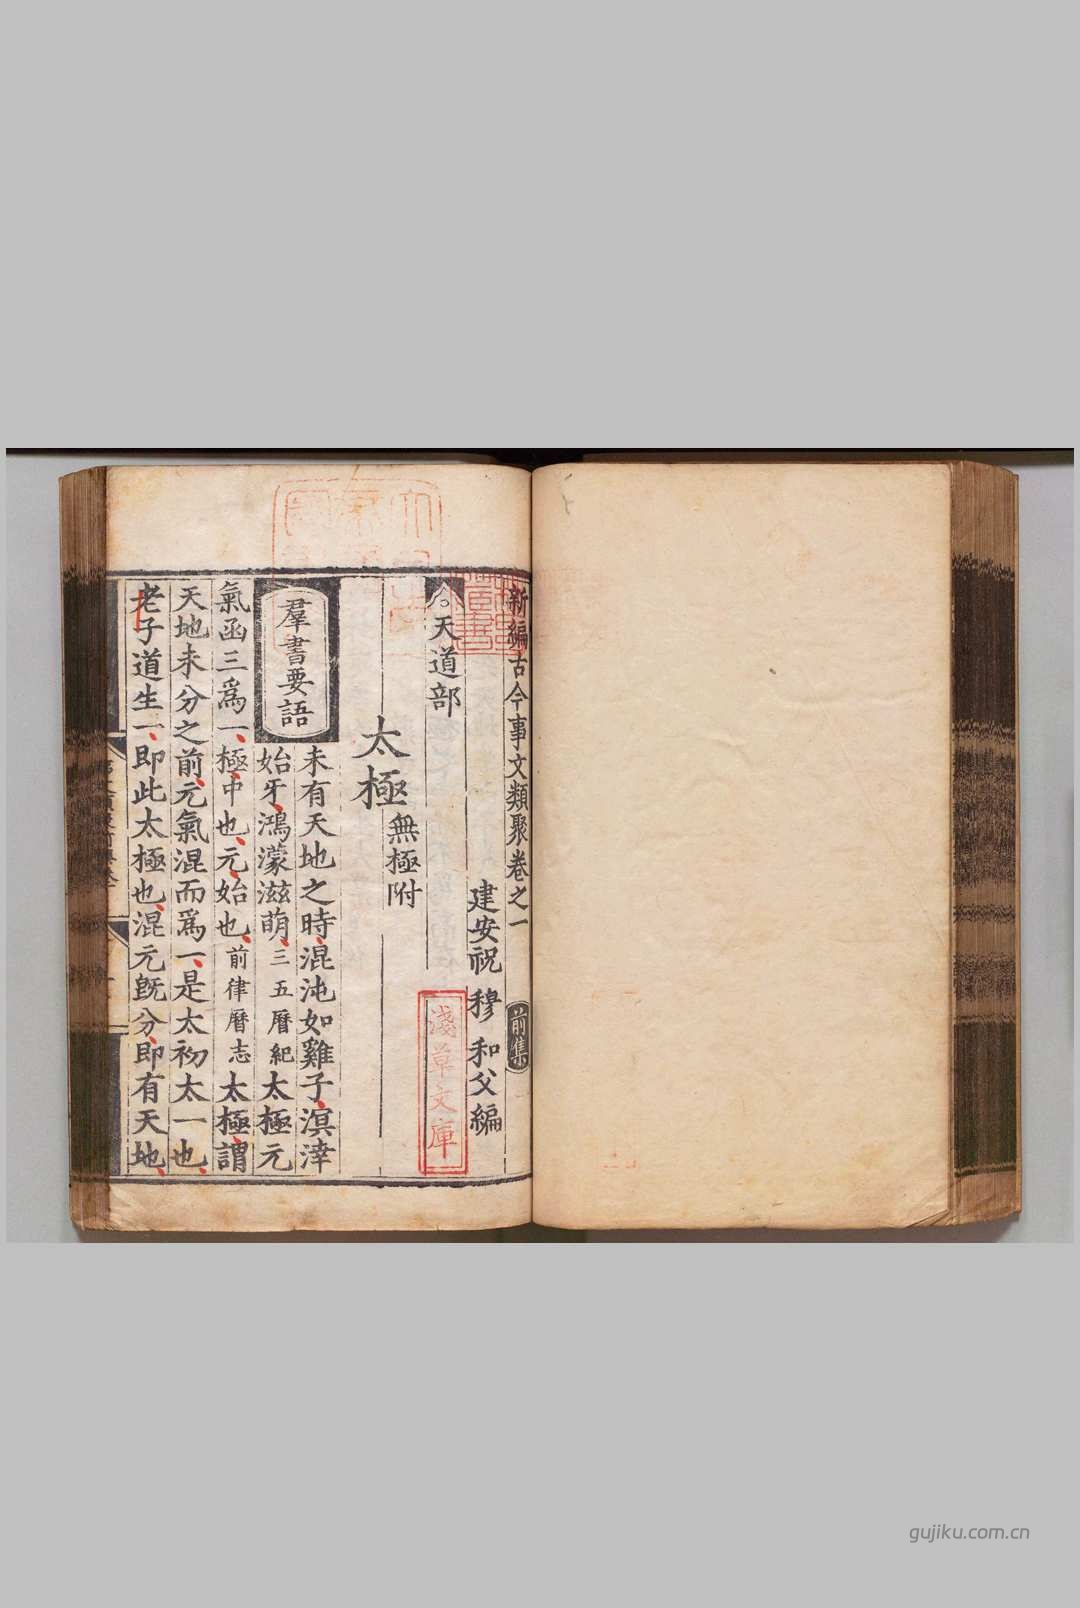 新編古今事文類聚卷之一 前集
建安祝 穆 和父編
天道部
太極 無極附
羣書要語
未有天地之時混沌如雞子溟涬
始牙鴻濛滋萌三五曆紀太極元
氣函三爲一極中也元始也前律曆志太極謂
天地未分之前元氣混而爲一是太初太一也
老子道生一即此太極也混元旣分即有天地
淺草文庫
gujiku.com.cn